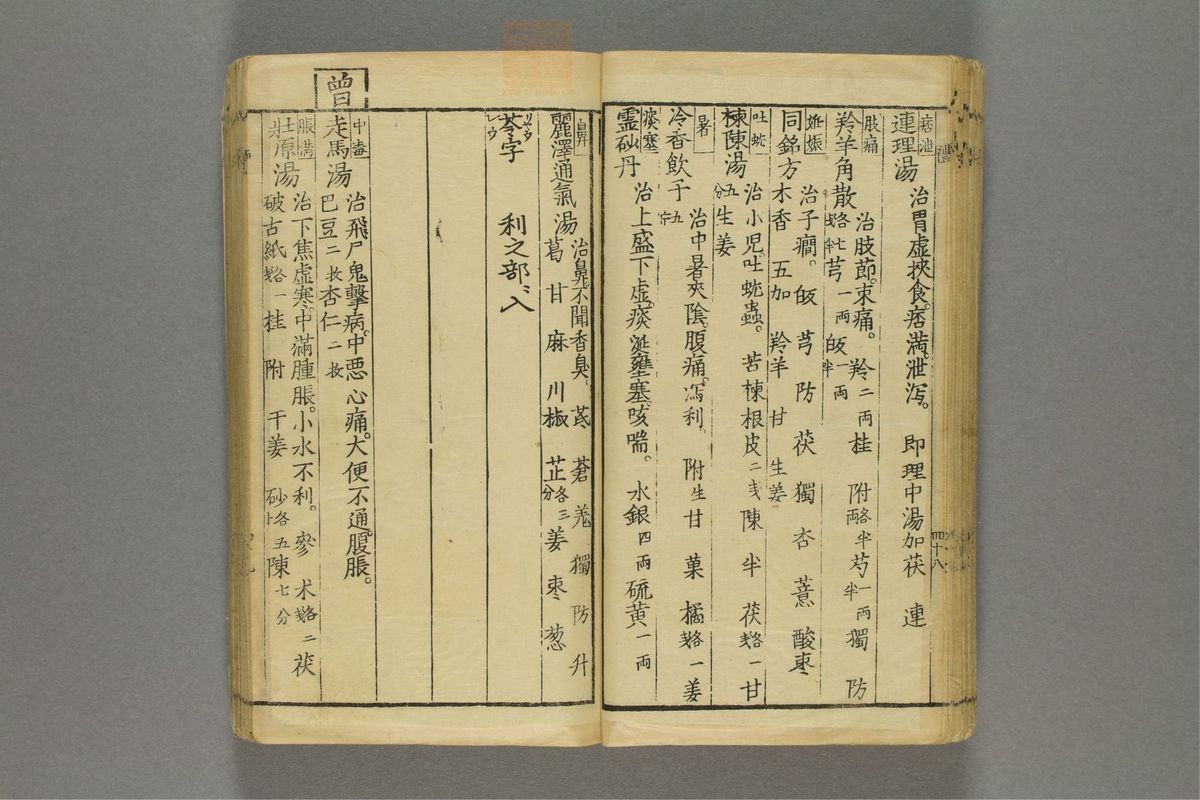 痞泄
連理湯
治胃虚挾食。痞満。泄瀉。 即理中湯加茯 連
肢痛
羚羊角散
治肢節。束痛。 羚二両 桂 附各半両 芍一両半 獨 防
各七戔半 芎一両 皈一両半
妊娠
同銘方
治子癇。 皈 芎 防 茯 獨 杏 薏 酸棗
木香 五加 羚羊 甘 生姜
吐蚘
棟陳湯
治小児。吐蚘蟲。 苦棟根皮二戔 陳 半 茯各一戔 甘
五分 生姜
暑
冷香飲子
治中暑夾陰。腹痛。瀉利。 附 生 甘 菓 橘各一戔 姜
痰塞
霊砂丹
治上盛下虚。痰涎壅塞。咳喘。 水銀四両 硫黄一両
四十八
鼻
麗澤通氣湯
治鼻不聞香臭。 芪 蒼 羗 獨 防 升
葛 甘 麻 川椒 芷各三分 姜 棗 葱
苓字
リヤウ
レウ
利之部ヽ入
曽
中毒
走馬湯
治飛尸鬼擊病。中悪心痛。大便不通。腹脹。
巴豆二枚 杏仁二枚
脹満
壮原湯
治下焦虚寒。中滿腫脹。小水不利。 參 术各二戔 茯
破古紙各一戔 桂 附 干姜 砂各五卜 陳七分